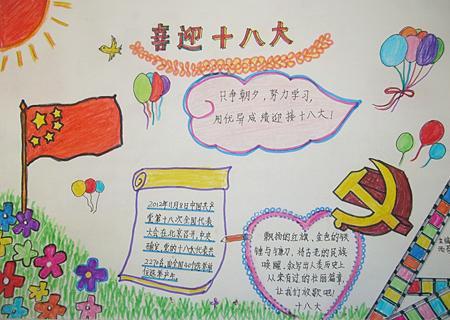 喜迎十八大
只争朝夕，努力学习，
用优异成绩迎接十八大！
2012年11月8日中国共产
党第十八次全国代表
大会在北京召开，中央
确定，党的十八大代表共
2270名，由全国40个选举单
位选举产生。
飘扬的红旗，金色的铁
锤与镰刀，将古老的民族
唤醒，叙写出人类历史上
从未有过的壮丽篇章，
让我们放歌吧！
十八大
主编